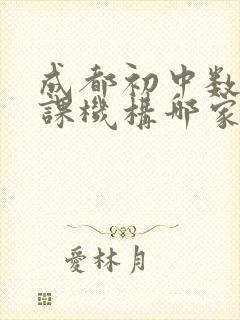 成都初中数
課機構哪家
愛林月